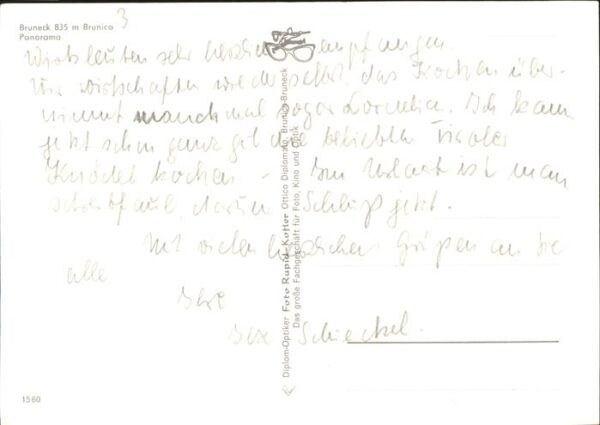 Bruneck 835 m Brunico
Panorama
3
Wirtsleuten sehr herzlich empfangen.
Wir wirtschaften wieder selbst, das Kochen über-
nimmt manchmal sogar Cornelia. Ich kann
jetzt schon ganz gut die beliebten Tiroler
Knödel kochen. - Im Urlaub ist man
schreibfaul, darum Schluß jetzt.
Mit vielen herzlichen Grüßen an Sie
alle
Ihre
Schieckel.
Diplom-Optiker Foto Rapid Kofler Ottico Diplomato, Brunico-Bruneck
Das große Fachgeschäft für Foto, Kino und Optik
1560